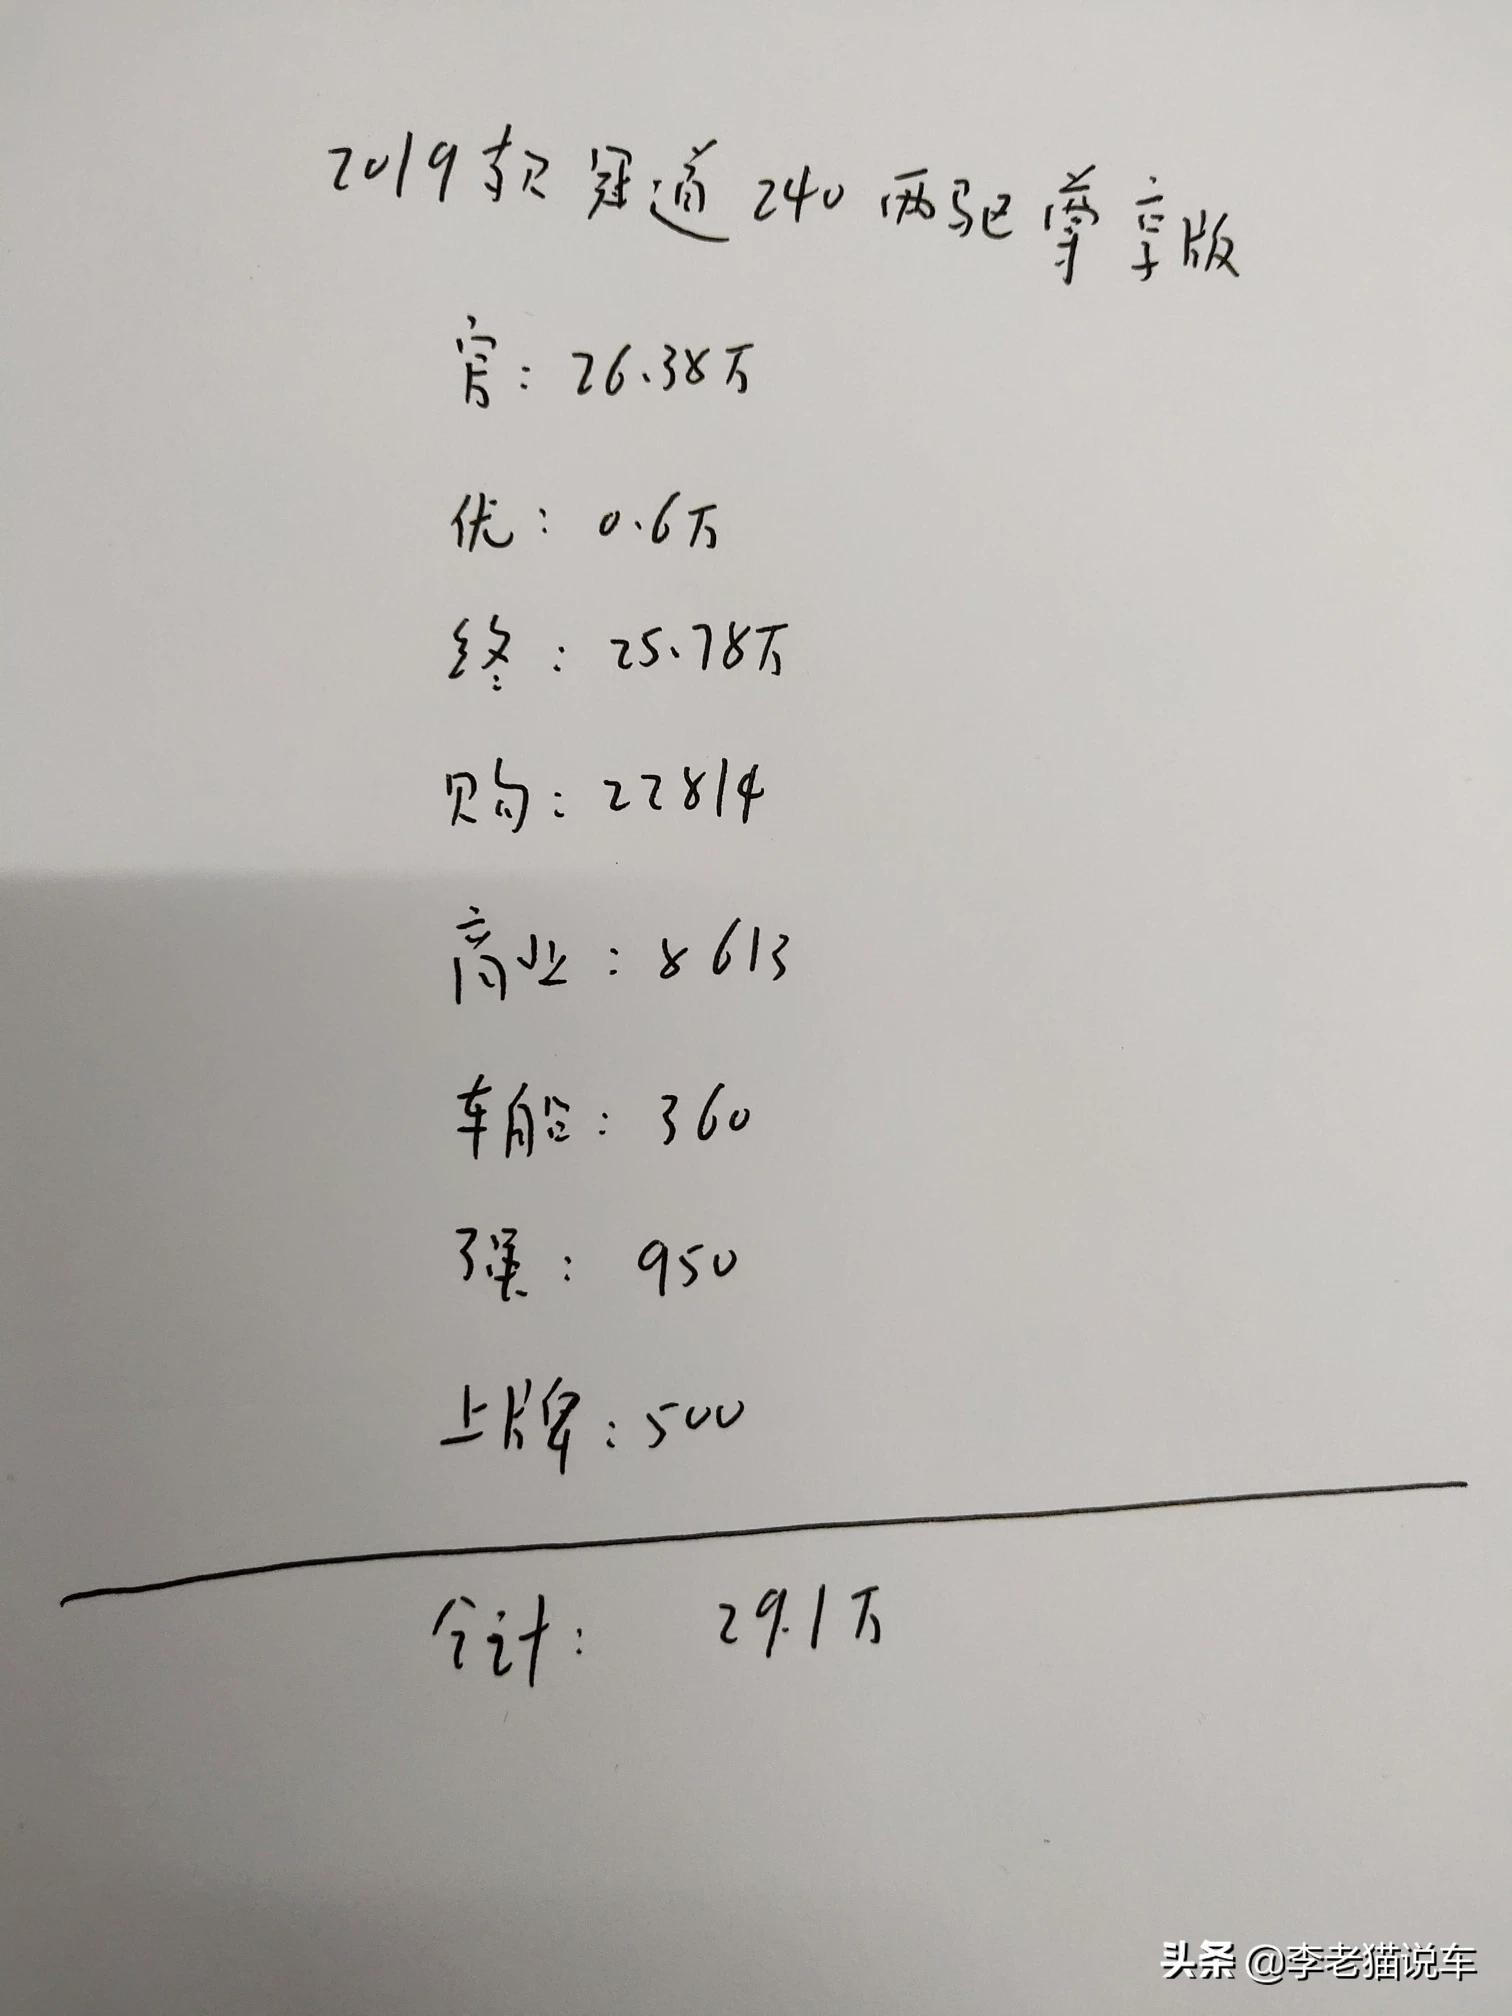 2019款冠道240两驱尊享版
官：26.38万
优：0.6万
终：25.78万
购：22814
商业：8613
车船：360
强：950
上牌：500
合计：29.1万
头条 @李老猫说车